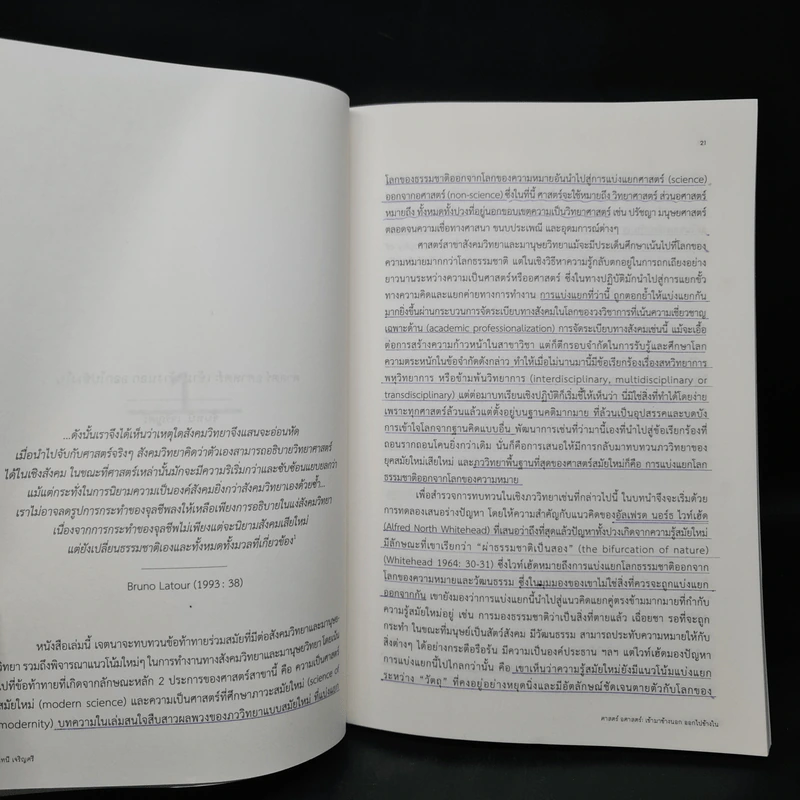 ...ดังนั้นเราจึงได้เห็นว่าเหตุใดสังคมวิทยาจึงแสนจะอ่อนหัด
เมื่อนำไปจับกับศาสตร์จริงๆ สังคมวิทยาคิดว่าตัวเองสามารถอธิบายวิทยาศาสตร์
ได้ในเชิงสังคม ในขณะที่ศาสตร์เหล่านั้นมักจะมีความริเริ่มกว่าและซับซ้อนแยบยลกว่า
แม้แต่กระทั่งในการนิยามความเป็นองค์สังคมยิ่งกว่าสังคมวิทยาเองด้วยซ้ำ...
เราไม่อาจลดรูปการกระทำของจุลชีพลงให้เหลือเพียงการอธิบายในแง่สังคมวิทยา
เนื่องจากการกระทำของจุลชีพไม่เพียงแต่จะนิยามสังคมเสียใหม่
แต่ยังเปลี่ยนธรรมชาติเองและทั้งหมดทั้งมวลที่เกี่ยวข้อง¹
Bruno Latour (1993: 38)
หนังสือเล่มนี้ เจตนาจะทบทวนข้อท้าทายร่วมสมัยที่มีต่อสังคมวิทยาและมานุษย-
วิทยา รวมถึงพิจารณาแนวโน้มใหม่ๆ ในการทำงานทางสังคมวิทยาและมานุษยวิทยา โดยเน้น
ไปที่ข้อท้าทายที่เกิดจากลักษณะหลัก 2 ประการของศาสตร์สาขานี้ คือ ความเป็นศาสตร์
สมัยใหม่ (modern science) และความเป็นศาสตร์ที่ศึกษาภาวะสมัยใหม่ (science of
modernity) บทความในเล่มสนใจสืบสาวผลพวงของภววิทยาแบบสมัยใหม่ ที่แบ่งแยก
เจริญศรี
21
โลกของธรรมชาติออกจากโลกของความหมายอันนำไปสู่การแบ่งแยกศาสตร์ (science)
ออกจากอศาสตร์ (non-science) ซึ่งในที่นี้ ศาสตร์จะใช้หมายถึง วิทยาศาสตร์ ส่วนอศาสตร์
หมายถึง ทั้งหมดทั้งปวงที่อยู่นอกขอบเขตความเป็นวิทยาศาสตร์ เช่น ปรัชญา มนุษยศาสตร์
ตลอดจนความเชื่อทางศาสนา ขนบประเพณี และอุดมการณ์ต่างๆ
ศาสตร์สาขาสังคมวิทยาและมานุษยวิทยาแม้จะมีประเด็นศึกษาเน้นไปที่โลกของ
ความหมายมากกว่าโลกธรรมชาติ แต่ในเชิงวิธีหาความรู้กลับตกอยู่ในการถกเถียงอย่าง
ยาวนานระหว่างความเป็นศาสตร์หรืออศาสตร์ ซึ่งในทางปฏิบัติมักนำไปสู่การแยกขั้ว
ทางความคิดและแยกค่ายทางการทำงาน การแบ่งแยกที่ว่านี้ ถูกตอกย้ำให้แบ่งแยกกัน
มากยิ่งขึ้นผ่านกระบวนการจัดระเบียบทางสังคมในโลกของวงวิชาการที่เน้นความเชี่ยวชาญ
เฉพาะด้าน (academic professionalization) การจัดระเบียบทางสังคมเช่นนี้ แม้จะเอื้อ
ต่อการสร้างความก้าวหน้าในสาขาวิชา แต่ก็ตีกรอบจำกัดในการรับรู้และศึกษาโลก
ความตระหนักในข้อจำกัดดังกล่าว ทำให้เมื่อไม่นานมานี้มีข้อเรียกร้องเรื่องสหวิทยาการ
พหุวิทยาการ หรือข้ามพ้นวิทยาการ (interdisciplinary, multidisciplinary or
transdisciplinary) แต่ต่อมาบทเรียนเชิงปฏิบัติก็เริ่มชี้ให้เห็นว่า นี่มิใช่สิ่งที่ทำได้โดยง่าย
เพราะทุกศาสตร์ล้วนแล้วแต่ตั้งอยู่บนฐานคติมากมาย ที่ล้วนเป็นอุปสรรคและบดบัง
การเข้าใจโลกจากฐานคิดแบบอื่น พัฒนาการเช่นที่ว่ามานี้เองที่นำไปสู่ข้อเรียกร้องที่
ถอนรากถอนโคนยิ่งกว่าเดิม นั่นก็คือการเสนอให้มีการกลับมาทบทวนภววิทยาของ
ยุคสมัยใหม่เสียใหม่ และภววิทยาพื้นฐานที่สุดของศาสตร์สมัยใหม่ก็คือ การแบ่งแยกโลก
ธรรมชาติออกจากโลกของความหมาย
เพื่อสำรวจการทบทวนในเชิงภววิทยาเช่นที่กล่าวไปนี้ ในบทนำจึงจะเริ่มด้วย
การทดลองเสนอร่างปัญหา โดยให้ความสำคัญกับแนวคิดของอัลเฟรด นอร์ธ ไวท์เฮ้ด
(Alfred North Whitehead) ที่เสนอว่าถึงที่สุดแล้วปัญหาทั้งปวงเกิดจากความรู้สมัยใหม่
มีลักษณะที่เขาเรียกว่า “ผ่าธรรมชาติเป็นสอง” (the bifurcation of nature)
(Whitehead 1964: 30-31) ซึ่งไวท์เฮ้ดหมายถึงการแบ่งแยกโลกธรรมชาติออกจาก
โลกของความหมายและวัฒนธรรม ซึ่งในมุมมองของเขาไม่ใช่สิ่งที่ควรจะถูกแบ่งแยก
ออกจากกัน เขายังมองว่าการแบ่งแยกนี้นำไปสู่แนวคิดแยกคู่ตรงข้ามมากมายที่กำกับ
ความรู้สมัยใหม่อยู่ เช่น การมองธรรมชาติว่าเป็นสิ่งที่ตายแล้ว เฉื่อยชา รอที่จะถูก
กระทำ ในขณะที่มนุษย์เป็นสัตว์สังคม มีวัฒนธรรม สามารถประทับความหมายให้กับ
สิ่งต่างๆ ได้อย่างกระตือรือร้น มีความเป็นองค์ประธาน ฯลฯ แต่ไวท์เฮ้ดมองปัญหา
การแบ่งแยกนี้ไปไกลกว่านั้น คือ เขาเห็นว่าความรู้สมัยใหม่ยังมีแนวโน้มแบ่งแยก
ระหว่าง “วัตถุ” ที่คงอยู่อย่างหยุดนิ่งและมีอัตลักษณ์ชัดเจนตายตัวกับโลกของ
ศาสตร์ อศาสตร์: เข้ามาข้างนอก ออกไปข้างใน